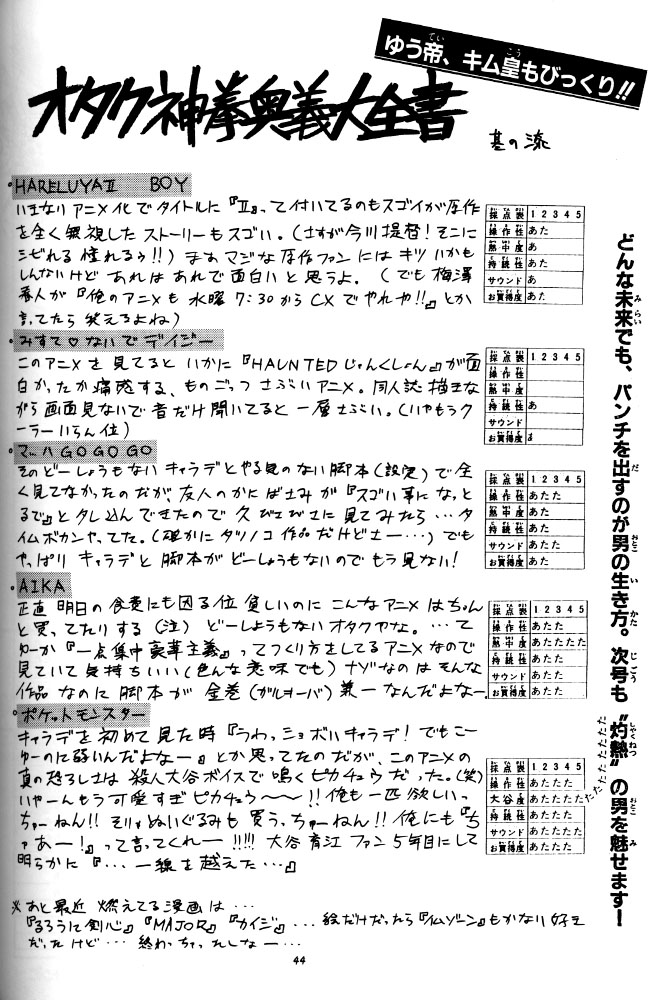 ゆう帝、キム皇もびっくり!!
オタク神拳奥義大全書
基の流
HARELUYAⅡ BOY
いまない アニメ化でタイトルに『Ⅱ』って付いてるのもスゴイが原作
を全く無視したストーリーもスゴい。(さすが今川提督!そこに
シビれる憧れるぅ!!)まぁマジな原作ファンにはキツいかも
しんないけど あれはあれで面白いと思うよ。(でも梅澤
春人が『俺のアニメも水曜7:30からCXでやれや!!』とか
言ってたら笑えるよね)
採点表 1 2 3 4 5
操作性 あた
熱中度 あ
持続性 あた
サウンド あ
お買得度 あた
みすて♡ないでデイジー
このアニメを見てるといかに『HAUNTEDじゃんくしょん』が面
白かったか痛感する、ものごっつさぶいアニメ。同人誌描きな
がら画面見ないで音だけ聞いてると一層さぶい。(いやもうク
ーラーいらん位)
採点表 1 2 3 4 5
操作性
熱中度
持続性 あ
サウンド
お買得度
マッハGOGOGO
そのどーしょうもないキャラデとやる気のない脚本(設定)で全
く見てなかったのだが、友人のかにばさみが『スゴい事になっと
るで』とタレ込んできたので久びさびさに見てみたら…タ
イムボカンやってた。(確かにタツノコ作品だけどさー…)でも
やっぱりキャラデと脚本がどーしょうもないのでもう見ない!
採点表 1 2 3 4 5
操作性 あたた
熱中度 あた
持続性 あた
サウンド あたた
お買得度 あた
AIKA
正直明日の食費にも困る位貧しいのにこんなアニメはちゃん
と買ってたりする(注)どーしょうもないオタクやな。…て
ゆーか『一点集中豪華主義』ってつくり方をしてるアニメなので
見ていて気持ちいい(色んな意味でも)ナゾなのはそんな
作品なのに脚本が金巻(ガルフォーバ)兼一なんだよなー
採点表 1 2 3 4 5
操作性 あたた
熱中度 あたたたた
持続性 あたた
サウンド あたた
お買得度 あたた
ポケットモンスター
キャラデを初めて見た時『うわっショボいキャラデ!でもこー
ゆーのに弱いんだよなー』とか思ってたのだが、このアニメの
真の恐ろしさは殺人大谷ボイスで鳴くピカチュウだった。(笑)
いやーんもう可愛すぎピカチュウ〜〜!!俺も一匹欲しいっ
ちゅーねん!!そりゃぬいぐるみも買うっちゅーねん!!俺にも『ち
ゃあー!』って言ってくれー!!!!!大谷育江ファン5年目にして
明らかに『…一線を越えた…』
採点表 1 2 3 4 5
操作性 あたたた
大谷度 あたたたたたたたたたたたた
持続性 あたたた
サウンド あたたたた
お買得度 あたたた
※あと最近燃えてる漫画は…
『るろうに剣心』『MAJOR』『カイジ』…絵だけだったら『仏ゾーン』もかない好き
だったけど…終わっちゃったしなー…
どんな未来でも、パンチを出すのが男の生き方。次号も“灼熱”の男を魅せます!
44